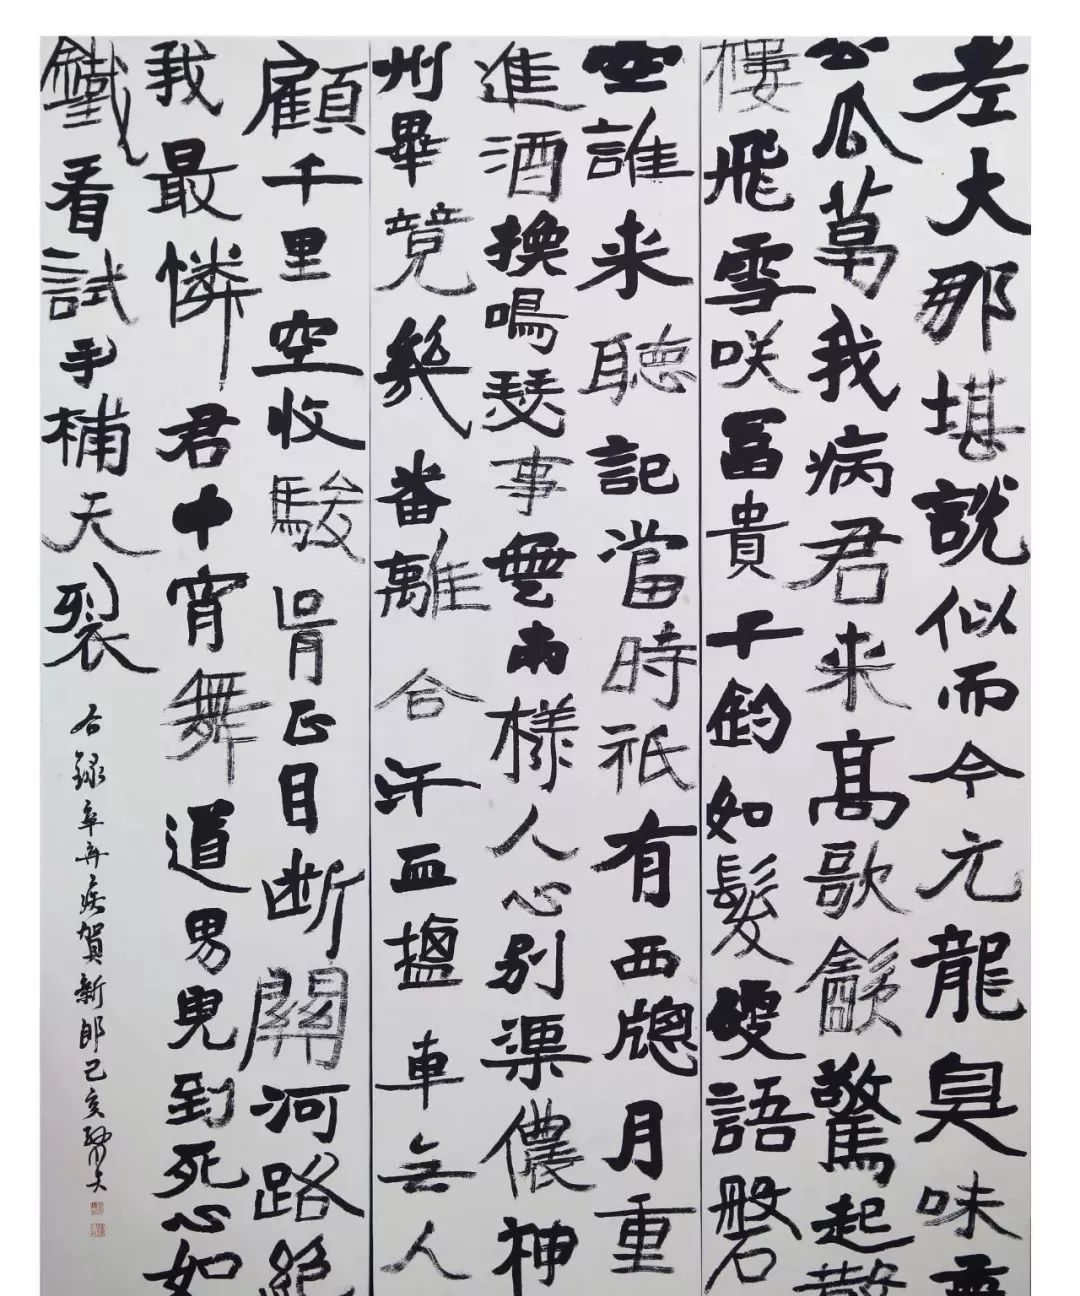 老大那堪説似而今元龍臭味孟
公瓜葛我病君来高歌飲驚起散
樓飛雪咲富貴千鈞如髮硬語磐
空誰来聽記當時祇有西牕月重
進酒換鳴瑟事無兩樣人心別渠儂神
州畢竟幾番離合汗血鹽車无人
顧千里空收駿骨正目断關河路絕
我最憐君中宵舞道男兒到死心如
鐵看試手補天裂
右録辛弃疾賀新郎己亥